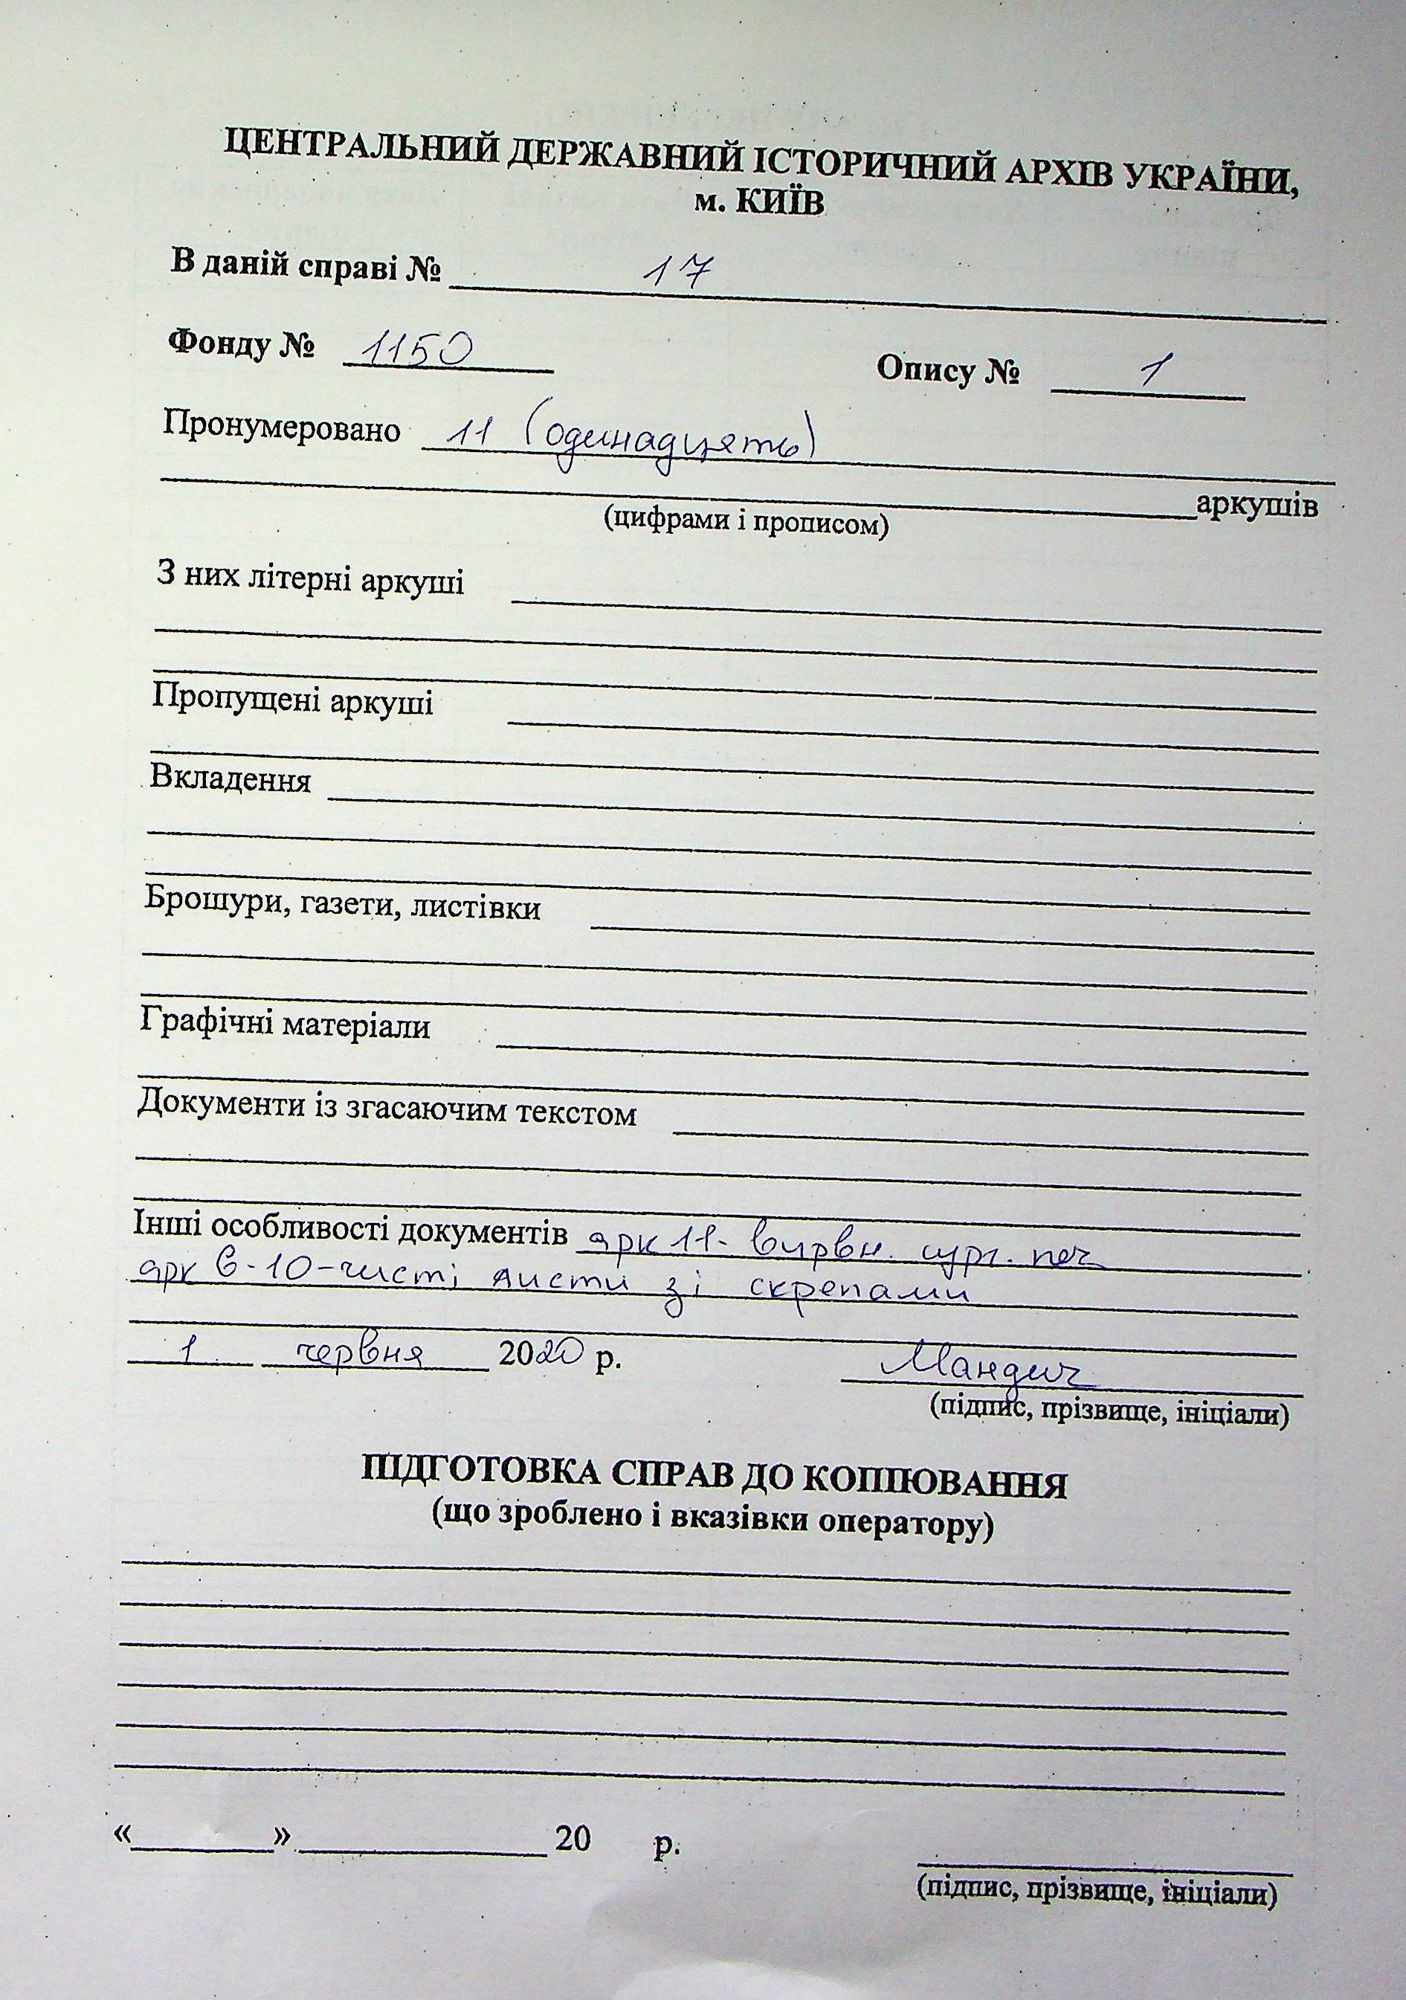 ЦЕНТРАЛЬНИЙ ДЕРЖАВНИЙ ІСТОРИЧНИЙ АРХІВ УКРАЇНИ,
м. КИЇВ
В даній справі № 17
Фонду № 1150 Опису № 1
Пронумеровано 11 (одинадцять)
аркушів
(цифрами і прописом)
З них літерні аркуші
Пропущені аркуші
Вкладення
Брошури, газети, листівки
Графічні матеріали
Документи із згасаючим текстом
Інші особливості документів арк 11- вирвн. сург. печ
арк 6-10-чисті листи зі скрепами
1 червня 2020 р. Мандич
(підпис, прізвище, ініціали)
ПІДГОТОВКА СПРАВ ДО КОПІЮВАННЯ
(що зроблено і вказівки оператору)
«________» ______________ 20 р.
(підпис, прізвище, ініціали)